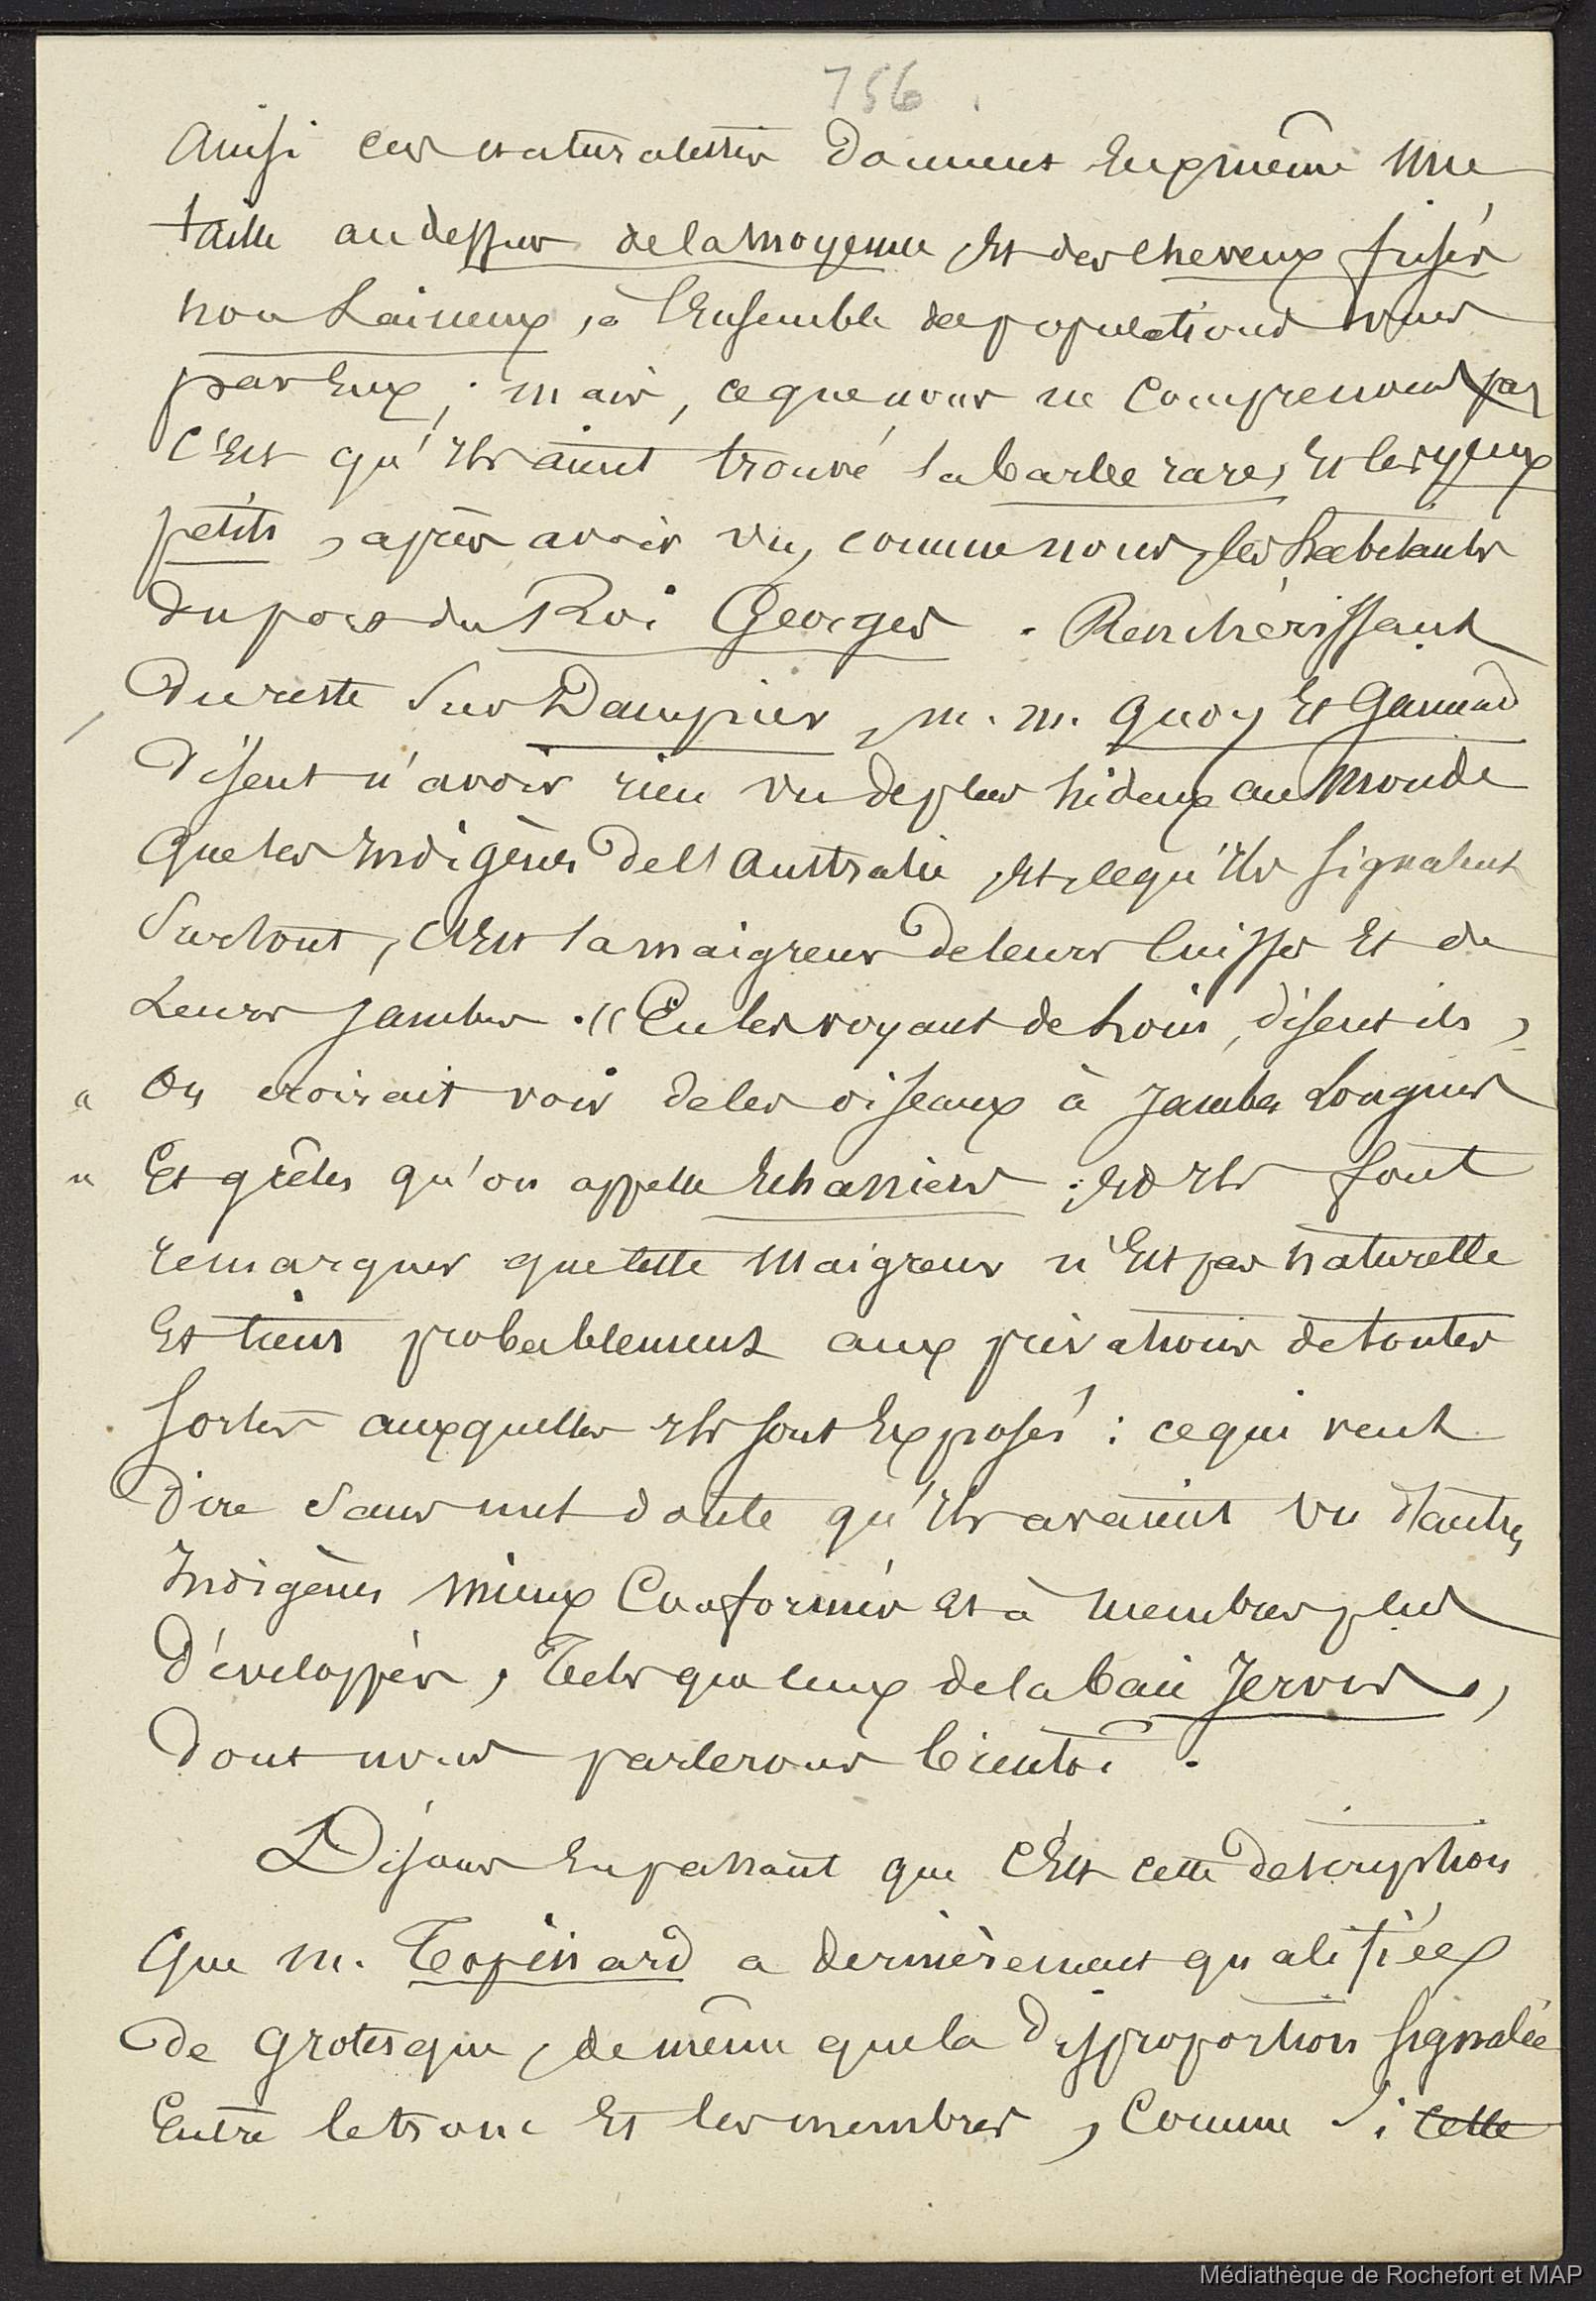 756
Ainsi ces naturalistes donnent eux même une
taille au dessus de la moyenne et des cheveux frisés
non laineux, à l'ensemble des populations vues
par eux ; mais, ce que nous ne comprenons pas
c'est qu'ils aient trouvé la barbe rare, et les yeux
petits, après avoir vu, comme nous, les habitants
du port du Roi Georges. Renchérissant
du reste sur Dampier, m. m. Quoy et Gaimard
disent n'avoir rien vu de plus hideux au monde
que les indigènes de l'Australie, et, ce qu'ils signalent
surtout, c'est la maigreur de leurs cuisses et de
leurs jambes. « En les voyant de loin, disent ils,
« on croirait voir de les oiseaux à jambes longues
« et grêles qu'on appelle Echassiers ; et ils font
remarquer que cette maigreur n'est pas naturelle
et tient probablement aux privations de toutes
sortes auxquelles ils sont exposés : ce qui veut
dire sans nul doute qu'ils avaient vu d'autres
indigènes mieux conformés et à membres plus
développés, tels que ceux de la baie Jervis,
dont nous parlerons bientôt.
Disons en passant que c'est cette description
que m. Topinard a dernièrement qualifiée
de grotesque, de même que la disproportion signalée
entre le tronc et les membres, comme si cette
Médiathèque de Rochefort et MAP